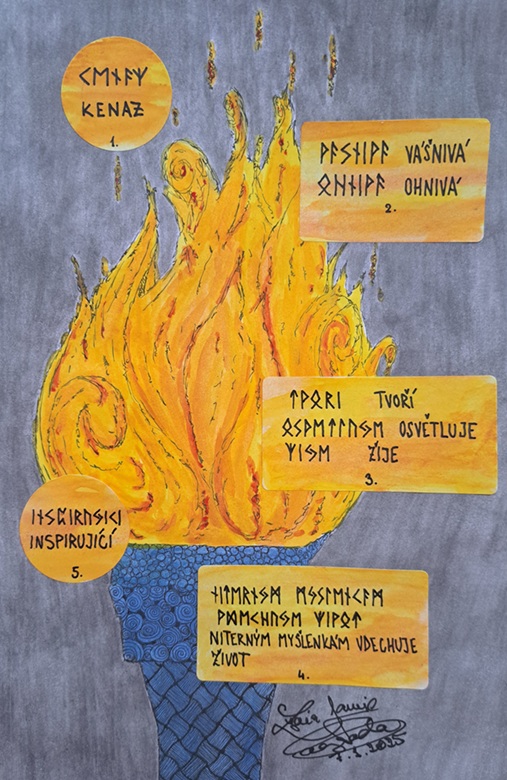 ᚲᛖᚾᚨᛉ
KENAZ
1.
ᚹᚨᛊᚾᛁᚹᚨ VÁŠNIVÁ
ᛟᚺᚾᛁᚹᚨ OHNIVÁ
2.
ᛏᚹᛟᚱᛁ TVOŘÍ
ᛟᛊᚹᛖᛏᛚᚢᛃᛖ OSVĚTLUJE
ᛉᛁᛃᛖ ŽIJE
3.
ᚾᛁᛏᛖᚱᚾᛃᛗ ᛗᛃᛊᛚᛖᚾᚲᚨᛗ
ᚹᛞᛖᚲᚺᚢᛃᛖ ᛉᛁᚹᛟᛏ
NITERNÝM MYŠLENKÁM VDECHUJE
ŽIVOT
4.
ᛁᚾᛊᛈᛁᚱᚢᛃᛁᚲᛁ
INSPIRUJÍCÍ
5.